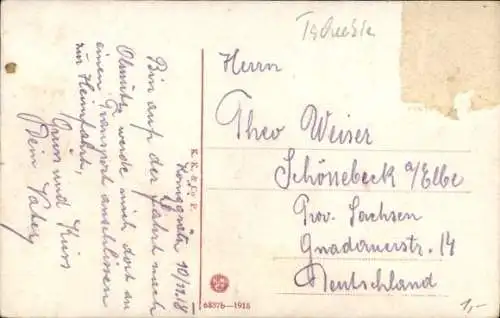 Tschechien
Königgrätz 10/11.18
Bin auf der Fahrt nach
Olmütz werde mich dort an
einen Transport anschliessen
zur Heimfahrt,
Gruss und Kuss
Dein Vater
K. K. & Co P.
6857b-1918
Herrn
Theo Weiser
Schönebeck a/Elbe
Prov. Sachsen
Gnadauerstr. 14
Deutschland
1,-